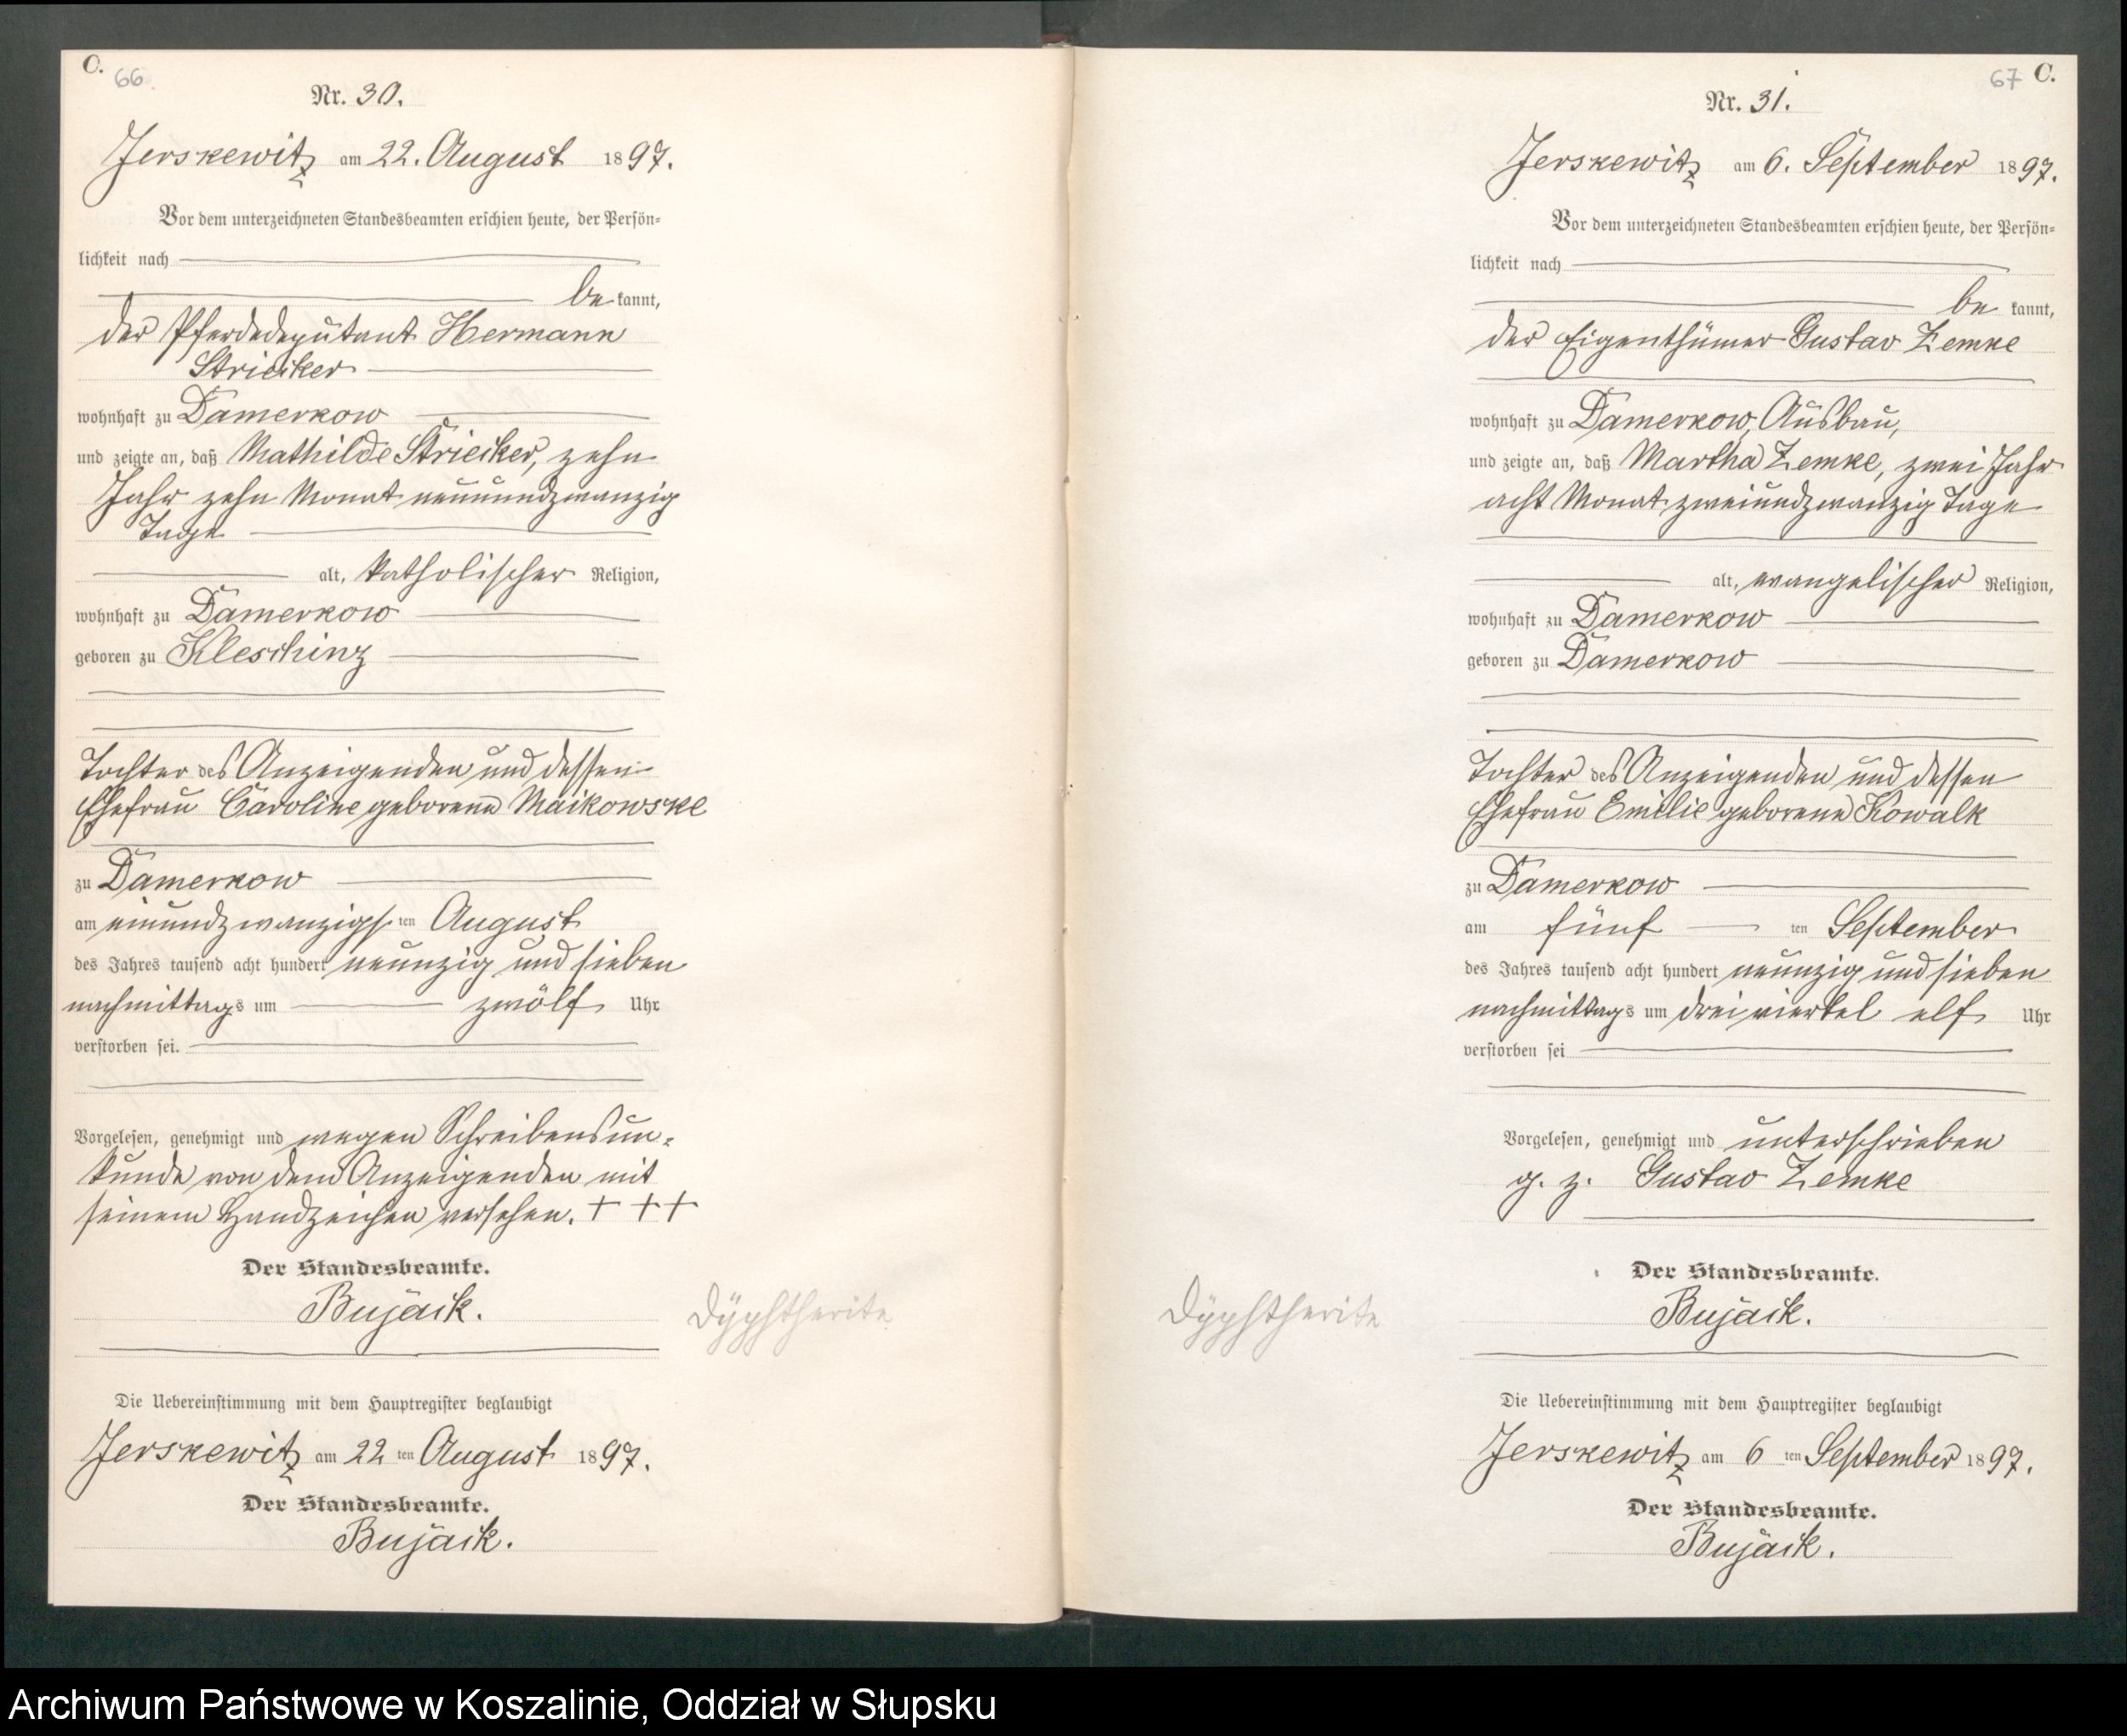 C.
66
Nr. 30.
Jerskewitz am 22. August 1897.
Vor dem unterzeichneten Standesbeamten erschien heute, der Persön=
lichkeit nach
be kannt,
der Pferdedeputant Hermann
Striecker
wohnhaft zu Damerkow
und zeigte an, daß Mathilde Striecker, zehn
Jahr zehn Monat neunundzwanzig
Tage
alt, katholischer Religion,
wohnhaft zu Damerkow
geboren zu Kleschinz
Tochter des Anzeigenden und dessen
Ehefrau Caroline geborene Maikowske
zu Damerkow
am einundzwanzigs ten August
des Jahres tausend acht hundert neunzig und sieben
nachmittags um zwölf Uhr
verstorben sei.
Vorgelesen, genehmigt und wegen Schreibensun=
kunde von dem Anzeigenden mit
seinem Handzeichen versehen. + + +
Der Standesbeamte.
Bujack.
Dÿphtherite
Die Uebereinstimmung mit dem Hauptregister beglaubigt
Jerskewitz am 22 ten August 1897.
Der Standesbeamte.
Bujack.
67
C.
Nr. 31.
Jerskewitz am 6. September 1897.
Vor dem unterzeichneten Standesbeamten erschien heute, der Persön=
lichkeit nach
be kannt,
der Eigenthümer Gustav Zemke
wohnhaft zu Damerkow, Ausbau,
und zeigte an, daß Martha Zemke, zwei Jahr
acht Monat zweiundzwanzig Tage
alt, evangelischer Religion,
wohnhaft zu Damerkow
geboren zu Damerkow
Tochter des Anzeigenden und dessen
Ehefrau Emilie geborene Kowalk
zu Damerkow
am fünf ten September
des Jahres tausend acht hundert neunzig und sieben
nachmittags um drei viertel elf Uhr
verstorben sei
Vorgelesen, genehmigt und unterschrieben
g. z. Gustav Zemke
Der Standesbeamte.
Bujack.
Dÿphtherite
Die Uebereinstimmung mit dem Hauptregister beglaubigt
Jerskewitz am 6 ten September 1897.
Der Standesbeamte.
Bujack.
Archiwum Państwowe w Koszalinie, Oddział w Słupsku